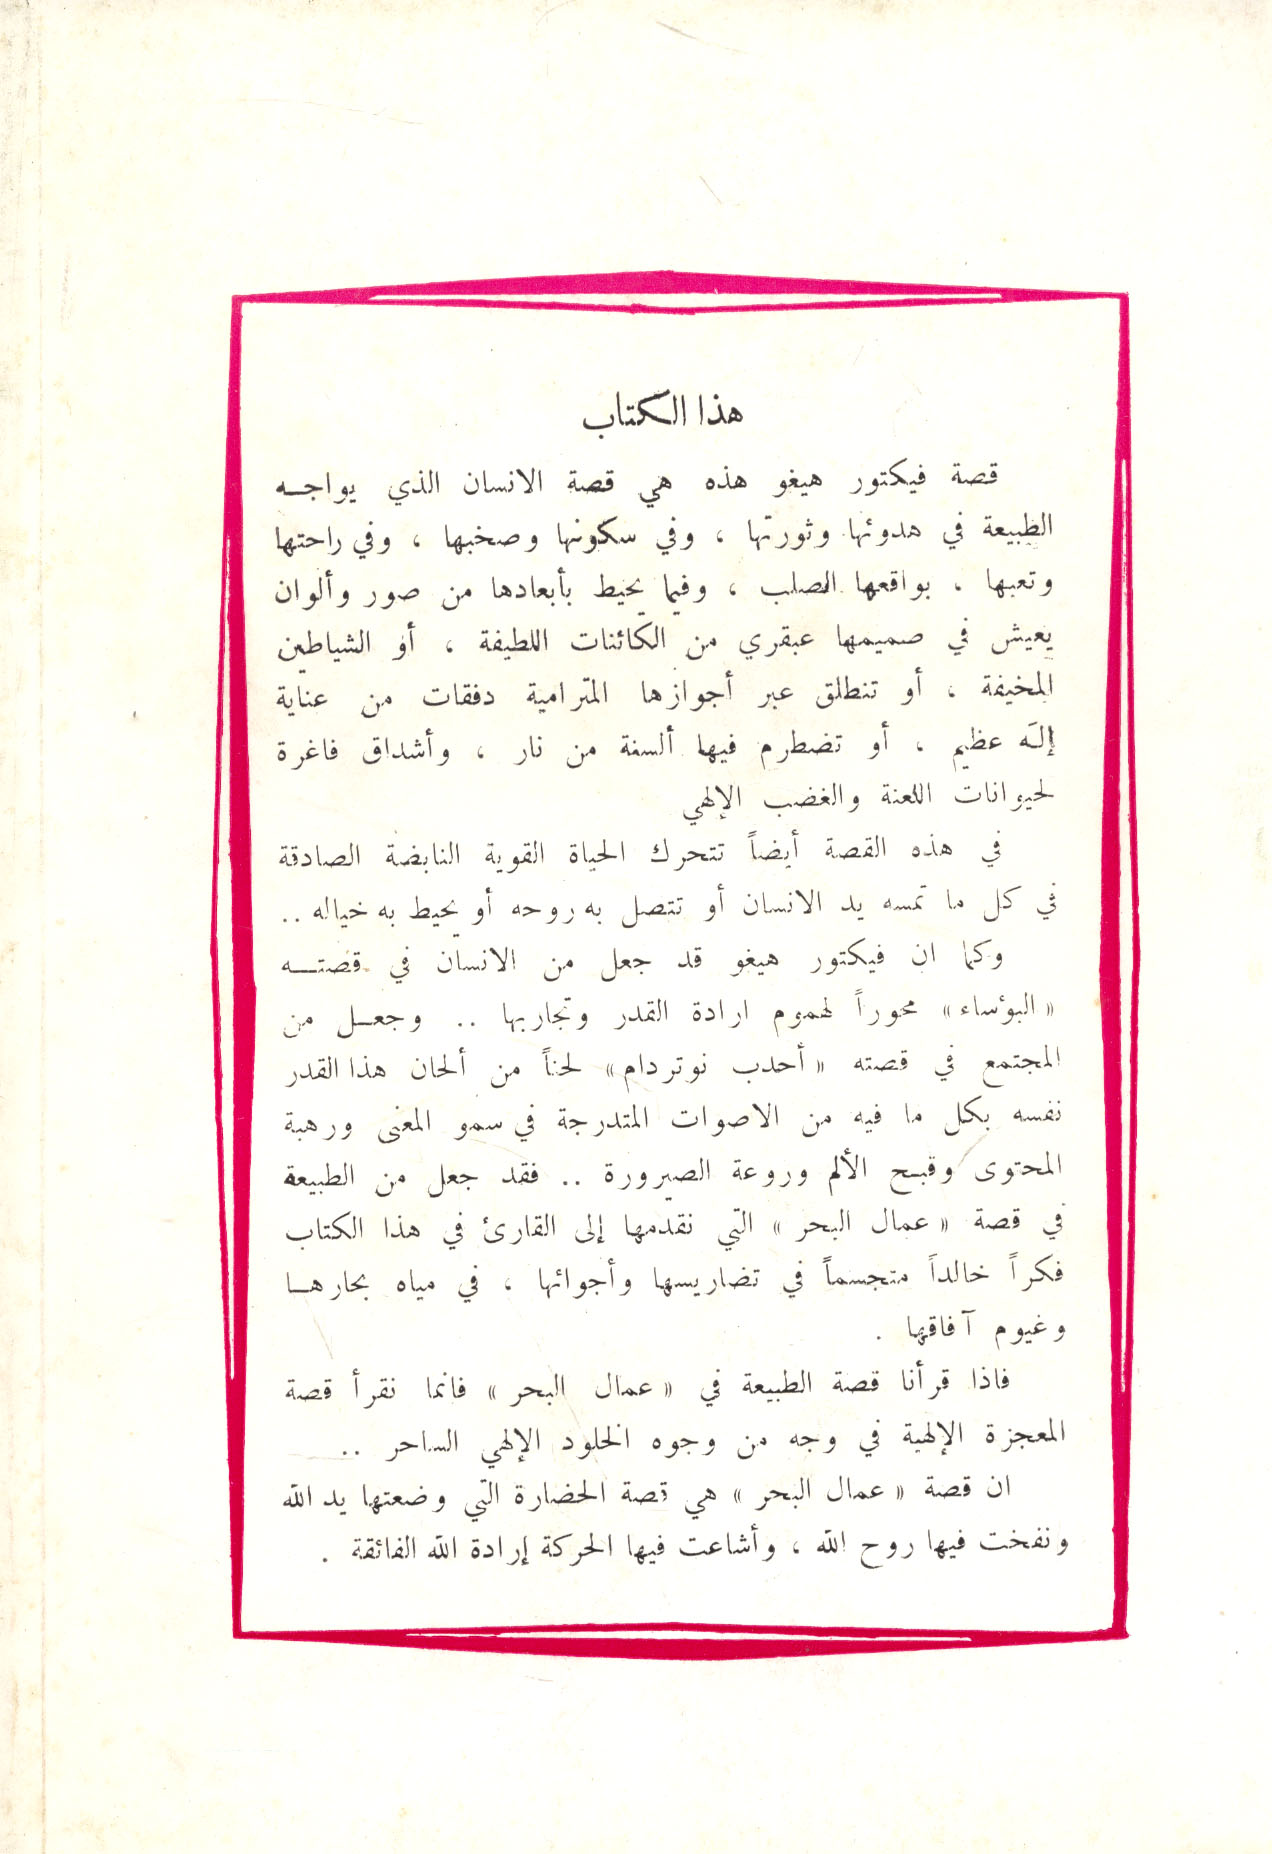 هذا الكتاب
قصة فيكتور هيغو هذه هي قصة الانسان الذي يواجـه
الطبيعة في هدوئها وثورتها ، وفي سكونها وصخبها ، وفي راحتها
وتعبها ، بواقعها الصلب ، وفيما يحيط بأبعادها من صور وألوان
يعيش في صميمها عبقري من الكائنات اللطيفة ، أو الشياطين
المخيفة ، أو تنطلق عبر أجوازها المترامية دفقات من عناية
إله عظيم ، أو تضطرم فيها ألسنة من نار ، وأشداق فاغرة
لحيوانات اللعنة والغضب الإلهي
في هذه القصة أيضاً تتحرك الحياة القوية النابضة الصادقة
في كل ما تمسه يد الانسان أو تتصل به روحه أو يحيط به خياله ..
وكما ان فيكتور هيغو قد جعل من الانسان في قصتـه
« البؤساء » محوراً لهموم ارادة القدر وتجاربها .. وجعـل من
المجتمع في قصته « أحدب نوتردام » لحناً من ألحان هذا القدر
نفسه بكل ما فيه من الاصوات المتدرجة في سمو المعنى ورهبة
المحتوى وقبـح الألم وروعة الصيرورة .. فقد جعل من الطبيعة
في قصة « عمال البحر » التي نقدمها إلى القارئ في هذا الكتاب
فكراً خالداً متجسماً في تضاريسها وأجوائها ، في مياه بحارهـا
وغيوم آفاقها .
فاذا قرأنا قصة الطبيعة في « عمال البحر » فانما نقرأ قصة
المعجزة الإلهية في وجه من وجوه الخلود الإلهي الساحر ..
ان قصة « عمال البحر » هي قصة الحضارة التي وضعتها يد الله
ونفخت فيها روح الله ، وأشاعت فيها الحركة إرادة الله الفائقة .